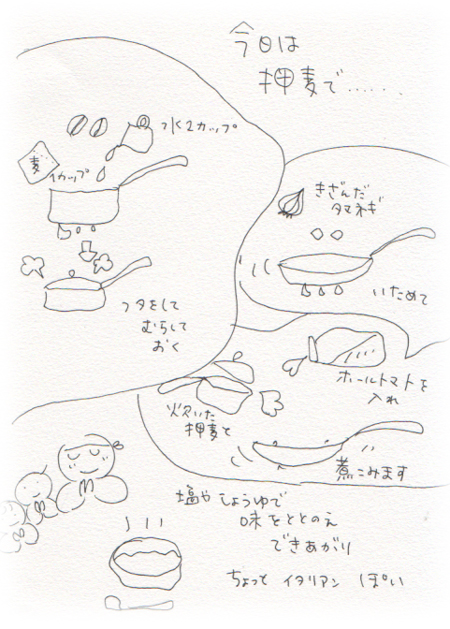 今日は
押麦で......
水2カップ
麦
1カップ
フタをして
むらして
おく
きざんだ
タマネギ
いためて
ホールトマトを
入れ
炊いた
押麦と
煮こみます
塩やしょうゆで
味をととのえ
できあがり
ちょっと イタリアン ぽい